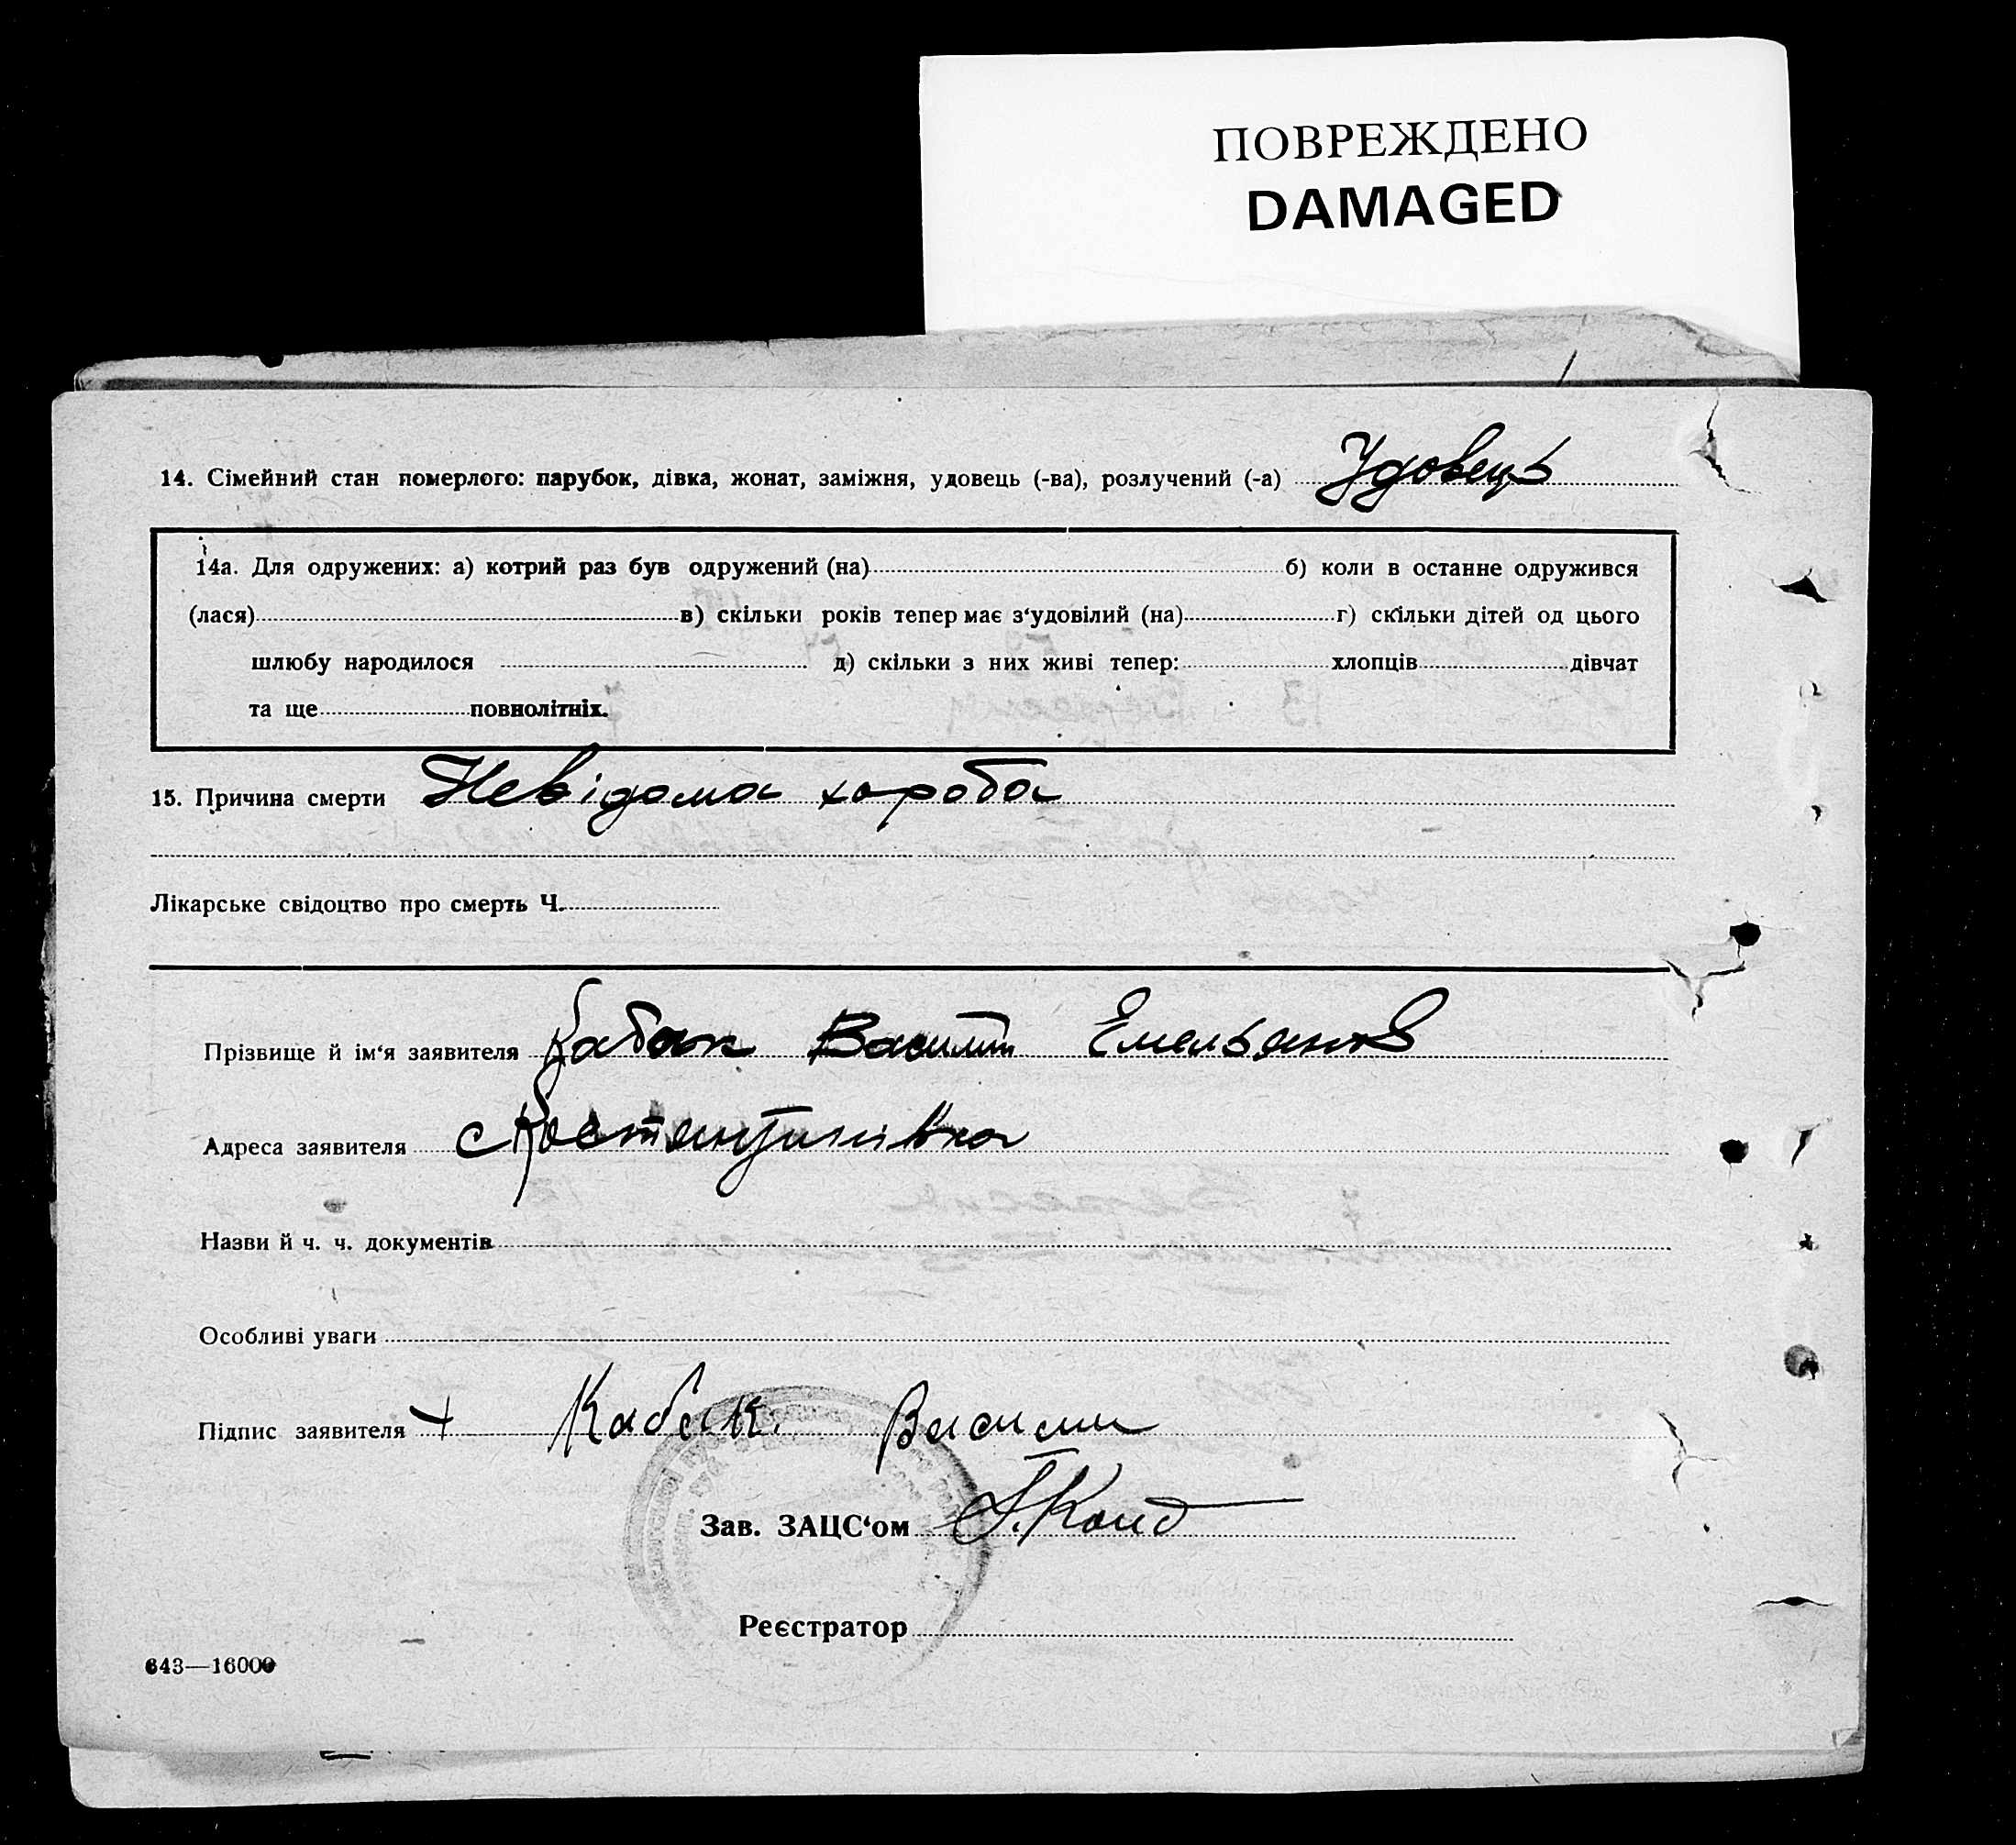 ПОВРЕЖДЕНО
DAMAGED
14. Сімейний стан померлого: парубок, дівка, жонат, заміжня, удовець (-ва), розлучений (-а) Удовець
14а. Для одружених: а) котрий раз був одружений (на) б) коли в останне одружився
(лася) в) скільки років тепер має з‘удовілий (на) г) скільки дітей од цього
шлюбу народилося д) скільки з них живі тепер: хлопців дівчат
та ще повнолітніх.
15. Причина смерти Невідома хороба
Лікарське свідоцтво про смерть Ч.
Прізвище й ім‘я заявителя Кабак Васили Емельянов
Адреса заявителя с Костянтинівка
Назви й ч. ч. документів
Особливі уваги
Підпис заявителя + Кабак. Васили
Зав. ЗАЦС‘ом
Реєстратор
643—16000